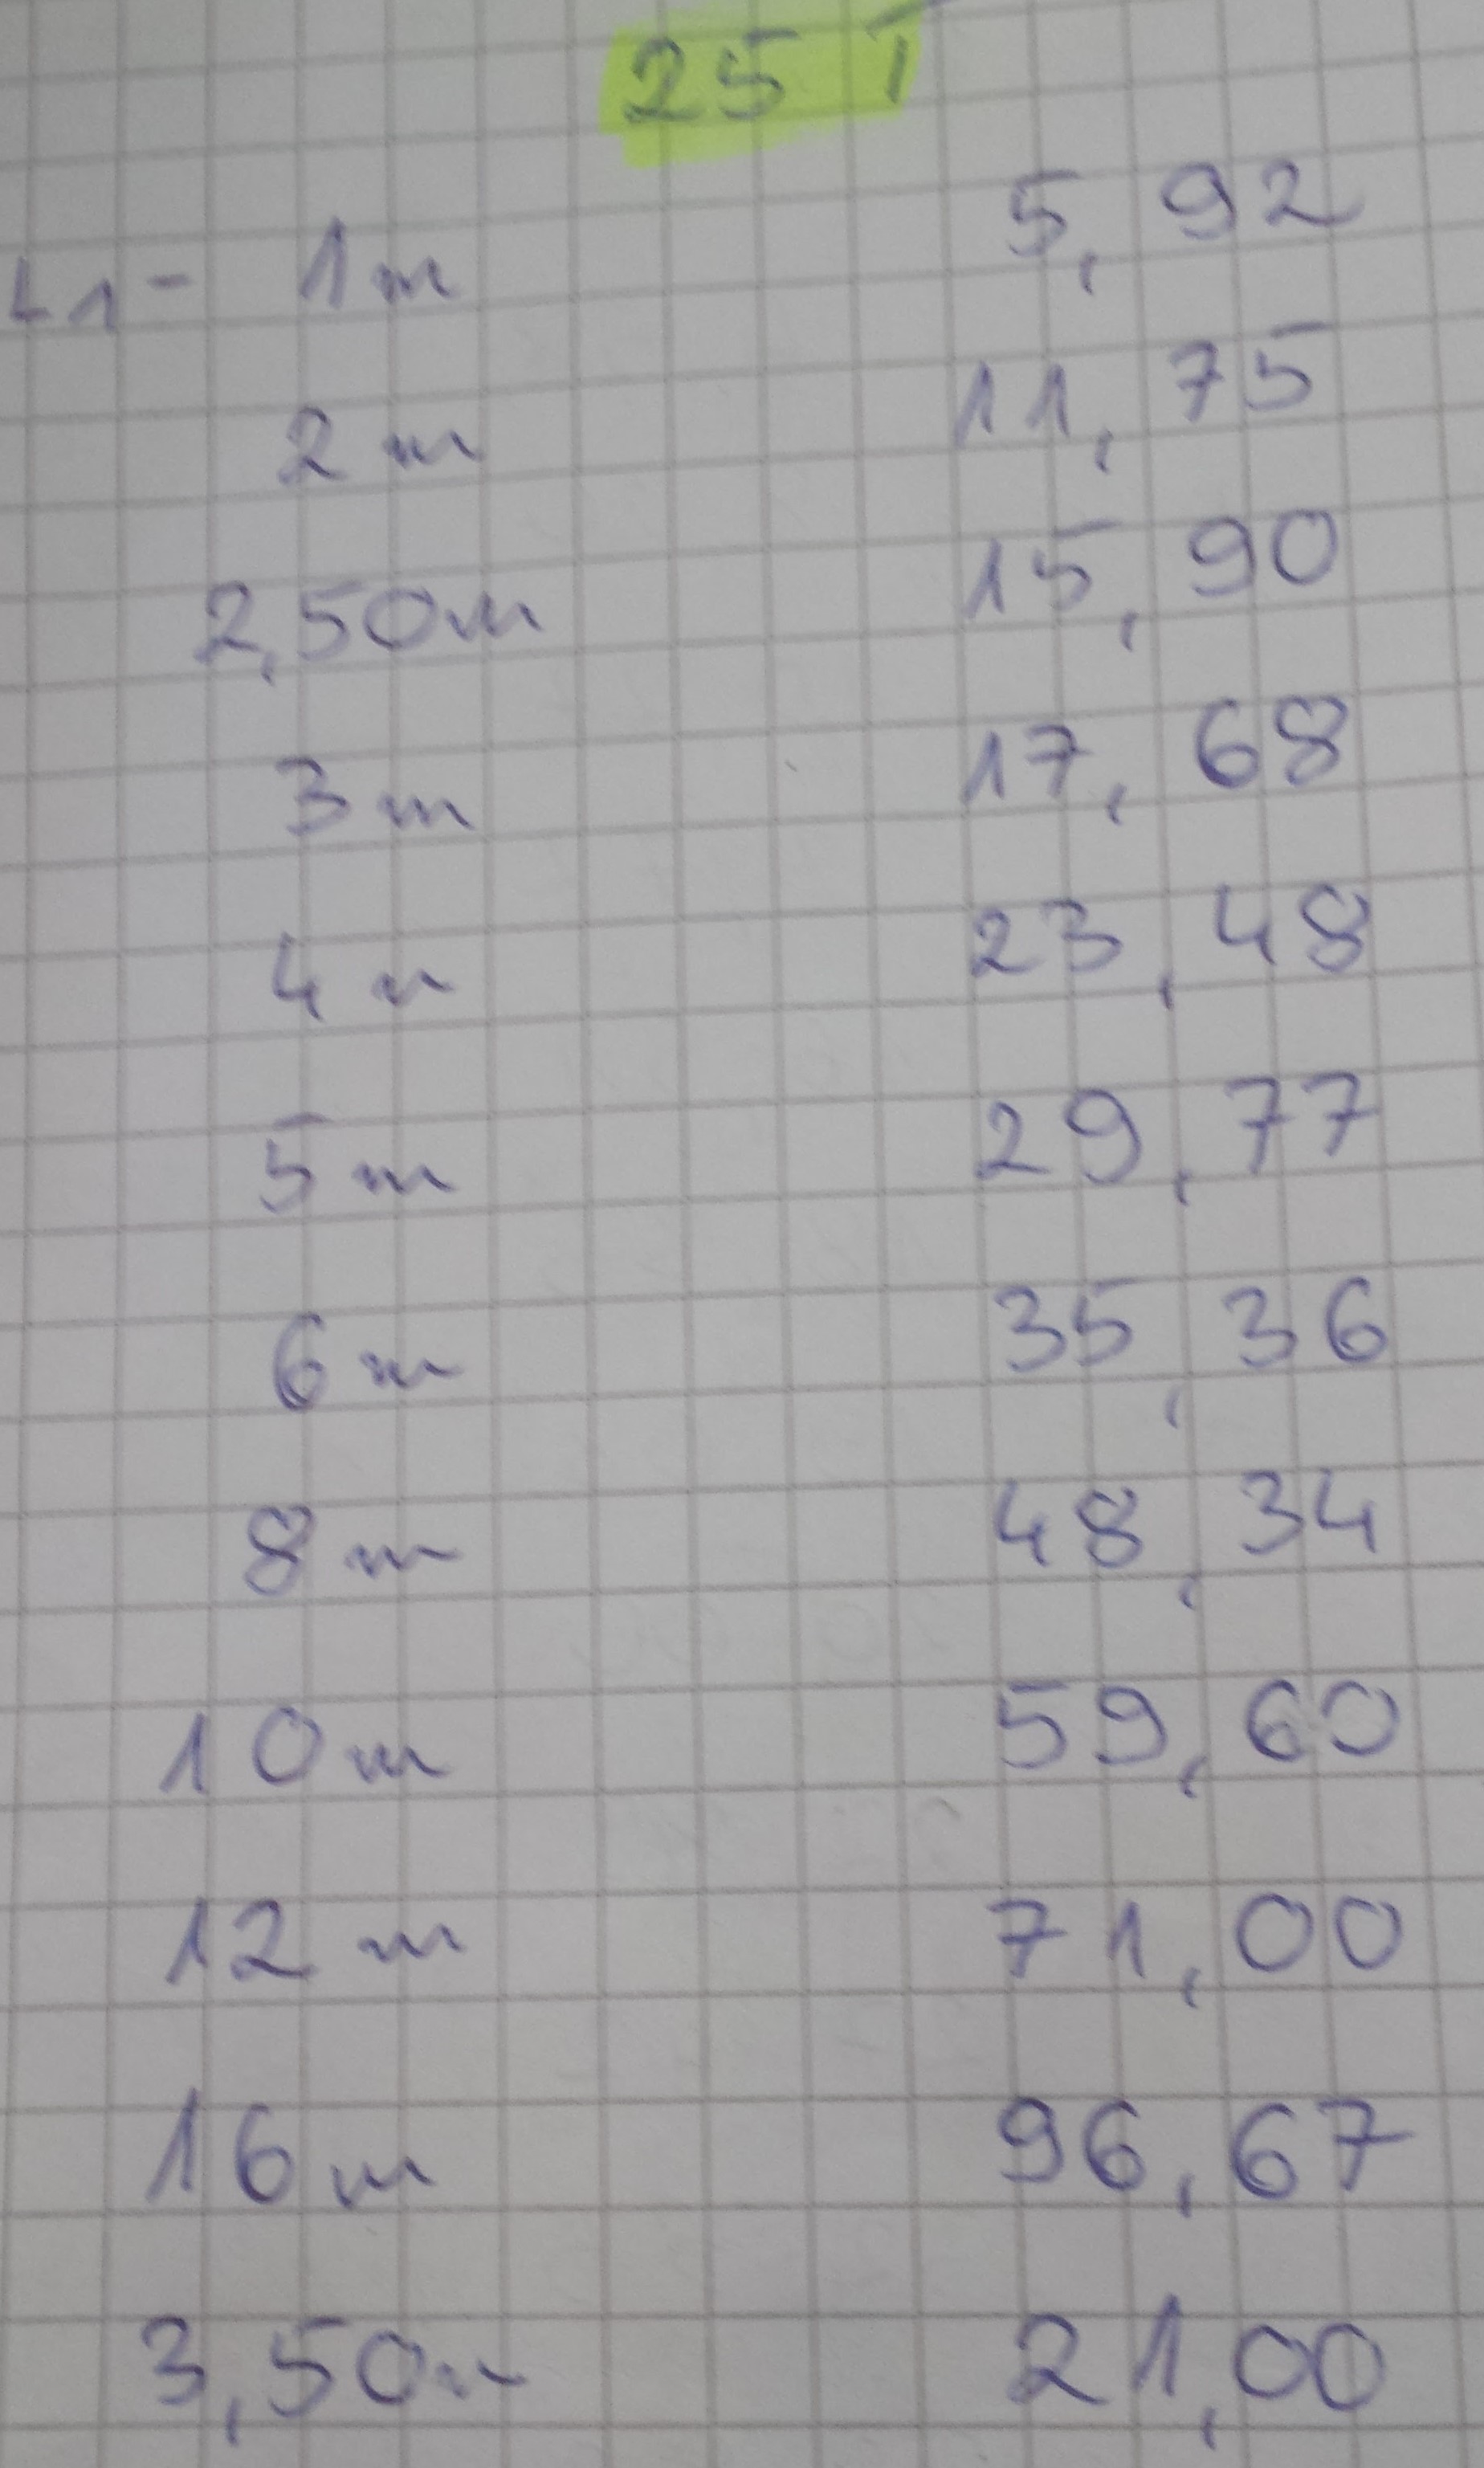 25 T
L1 - 1m 5,92
2m 11,75
2,50m 15,90
3m 17,68
4m 23,48
5m 29,77
6m 35,36
8m 48,34
10m 59,60
12m 71,00
16m 96,67
3,50m 21,00